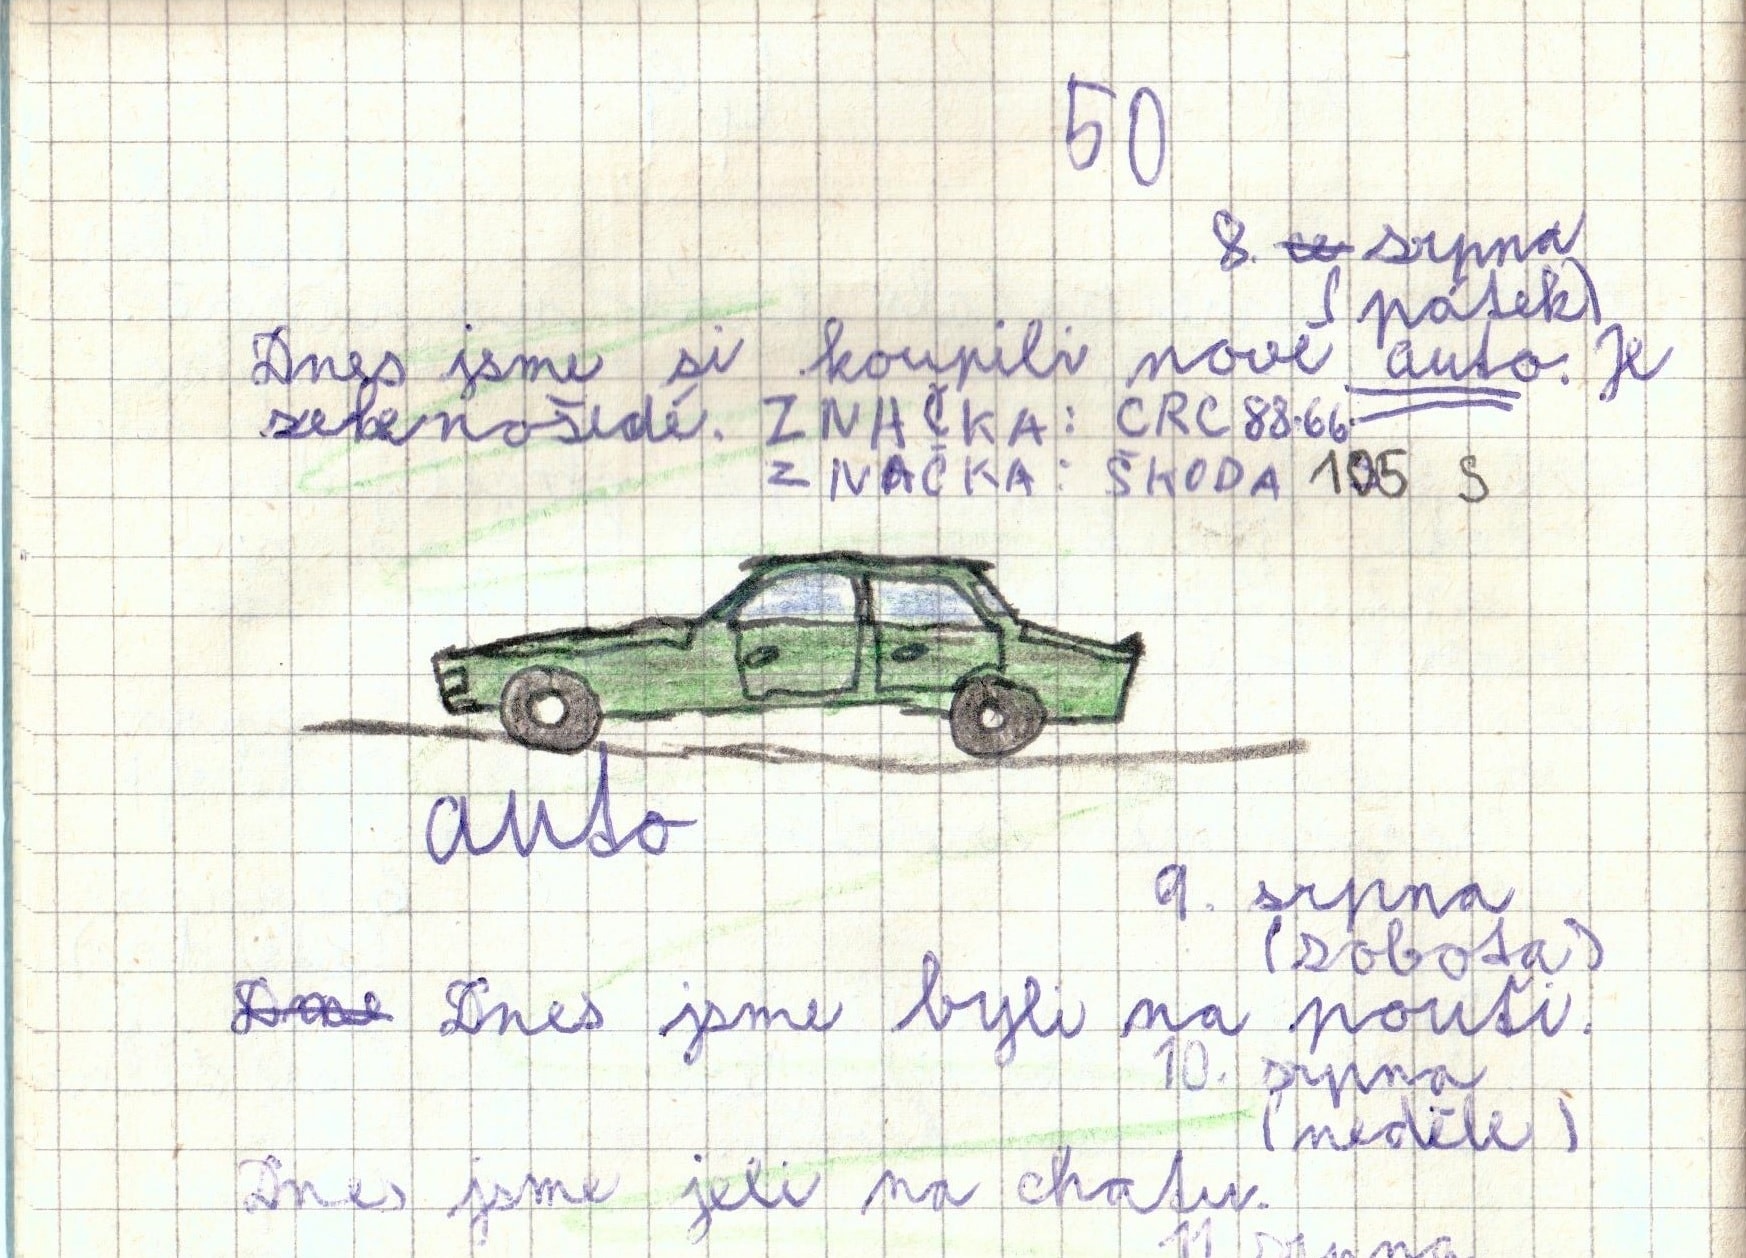 50
8. srpna
(pátek)
Dnes jsme si koupili nové auto. Je
zelenošedé. ZNAČKA: CRC 88-66
ZNAČKA: ŠKODA 105 S
auto
9. srpna
(sobota)
Dnes jsme byli na pouti.
10. srpna
(neděle)
Dnes jsme jeli na chatu.
11. srpna